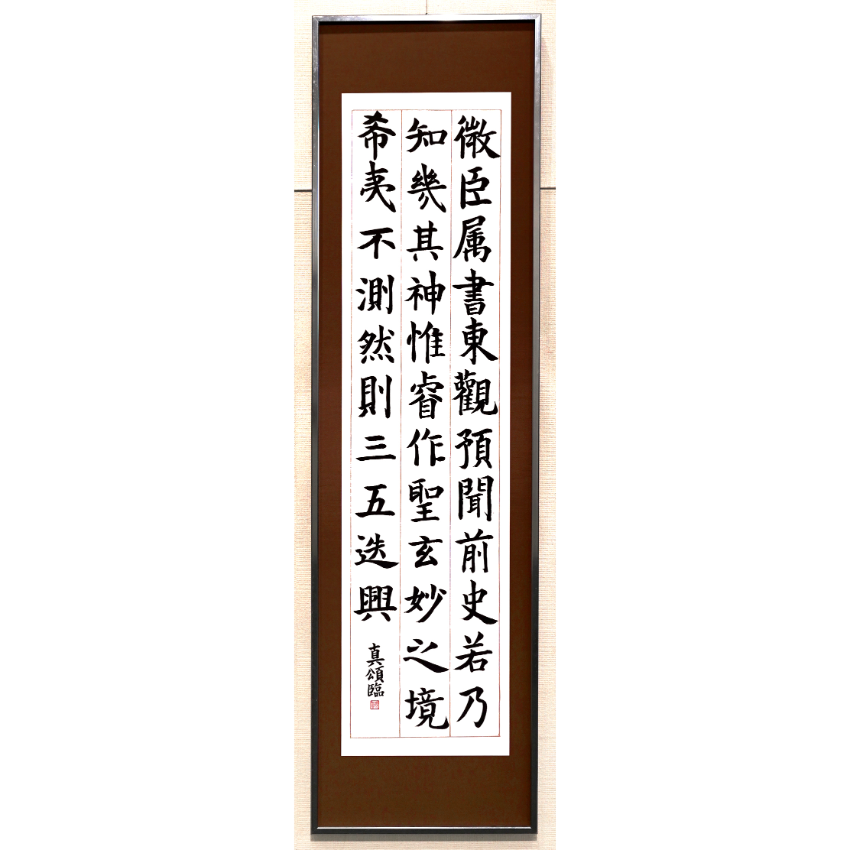 微臣属書東觀預聞前史若乃
知幾其神惟睿作聖玄妙之境
希夷不測然則三五迭興
真頌臨